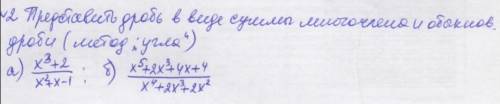 №2. Представить дробь в виде суммы многочлена и обыкнов.
дроби (метод „угла")
а) (x³+2)/(x²+x-1); б) (x⁵+2x³+4x+4)/(x⁴+2x³+2x²)